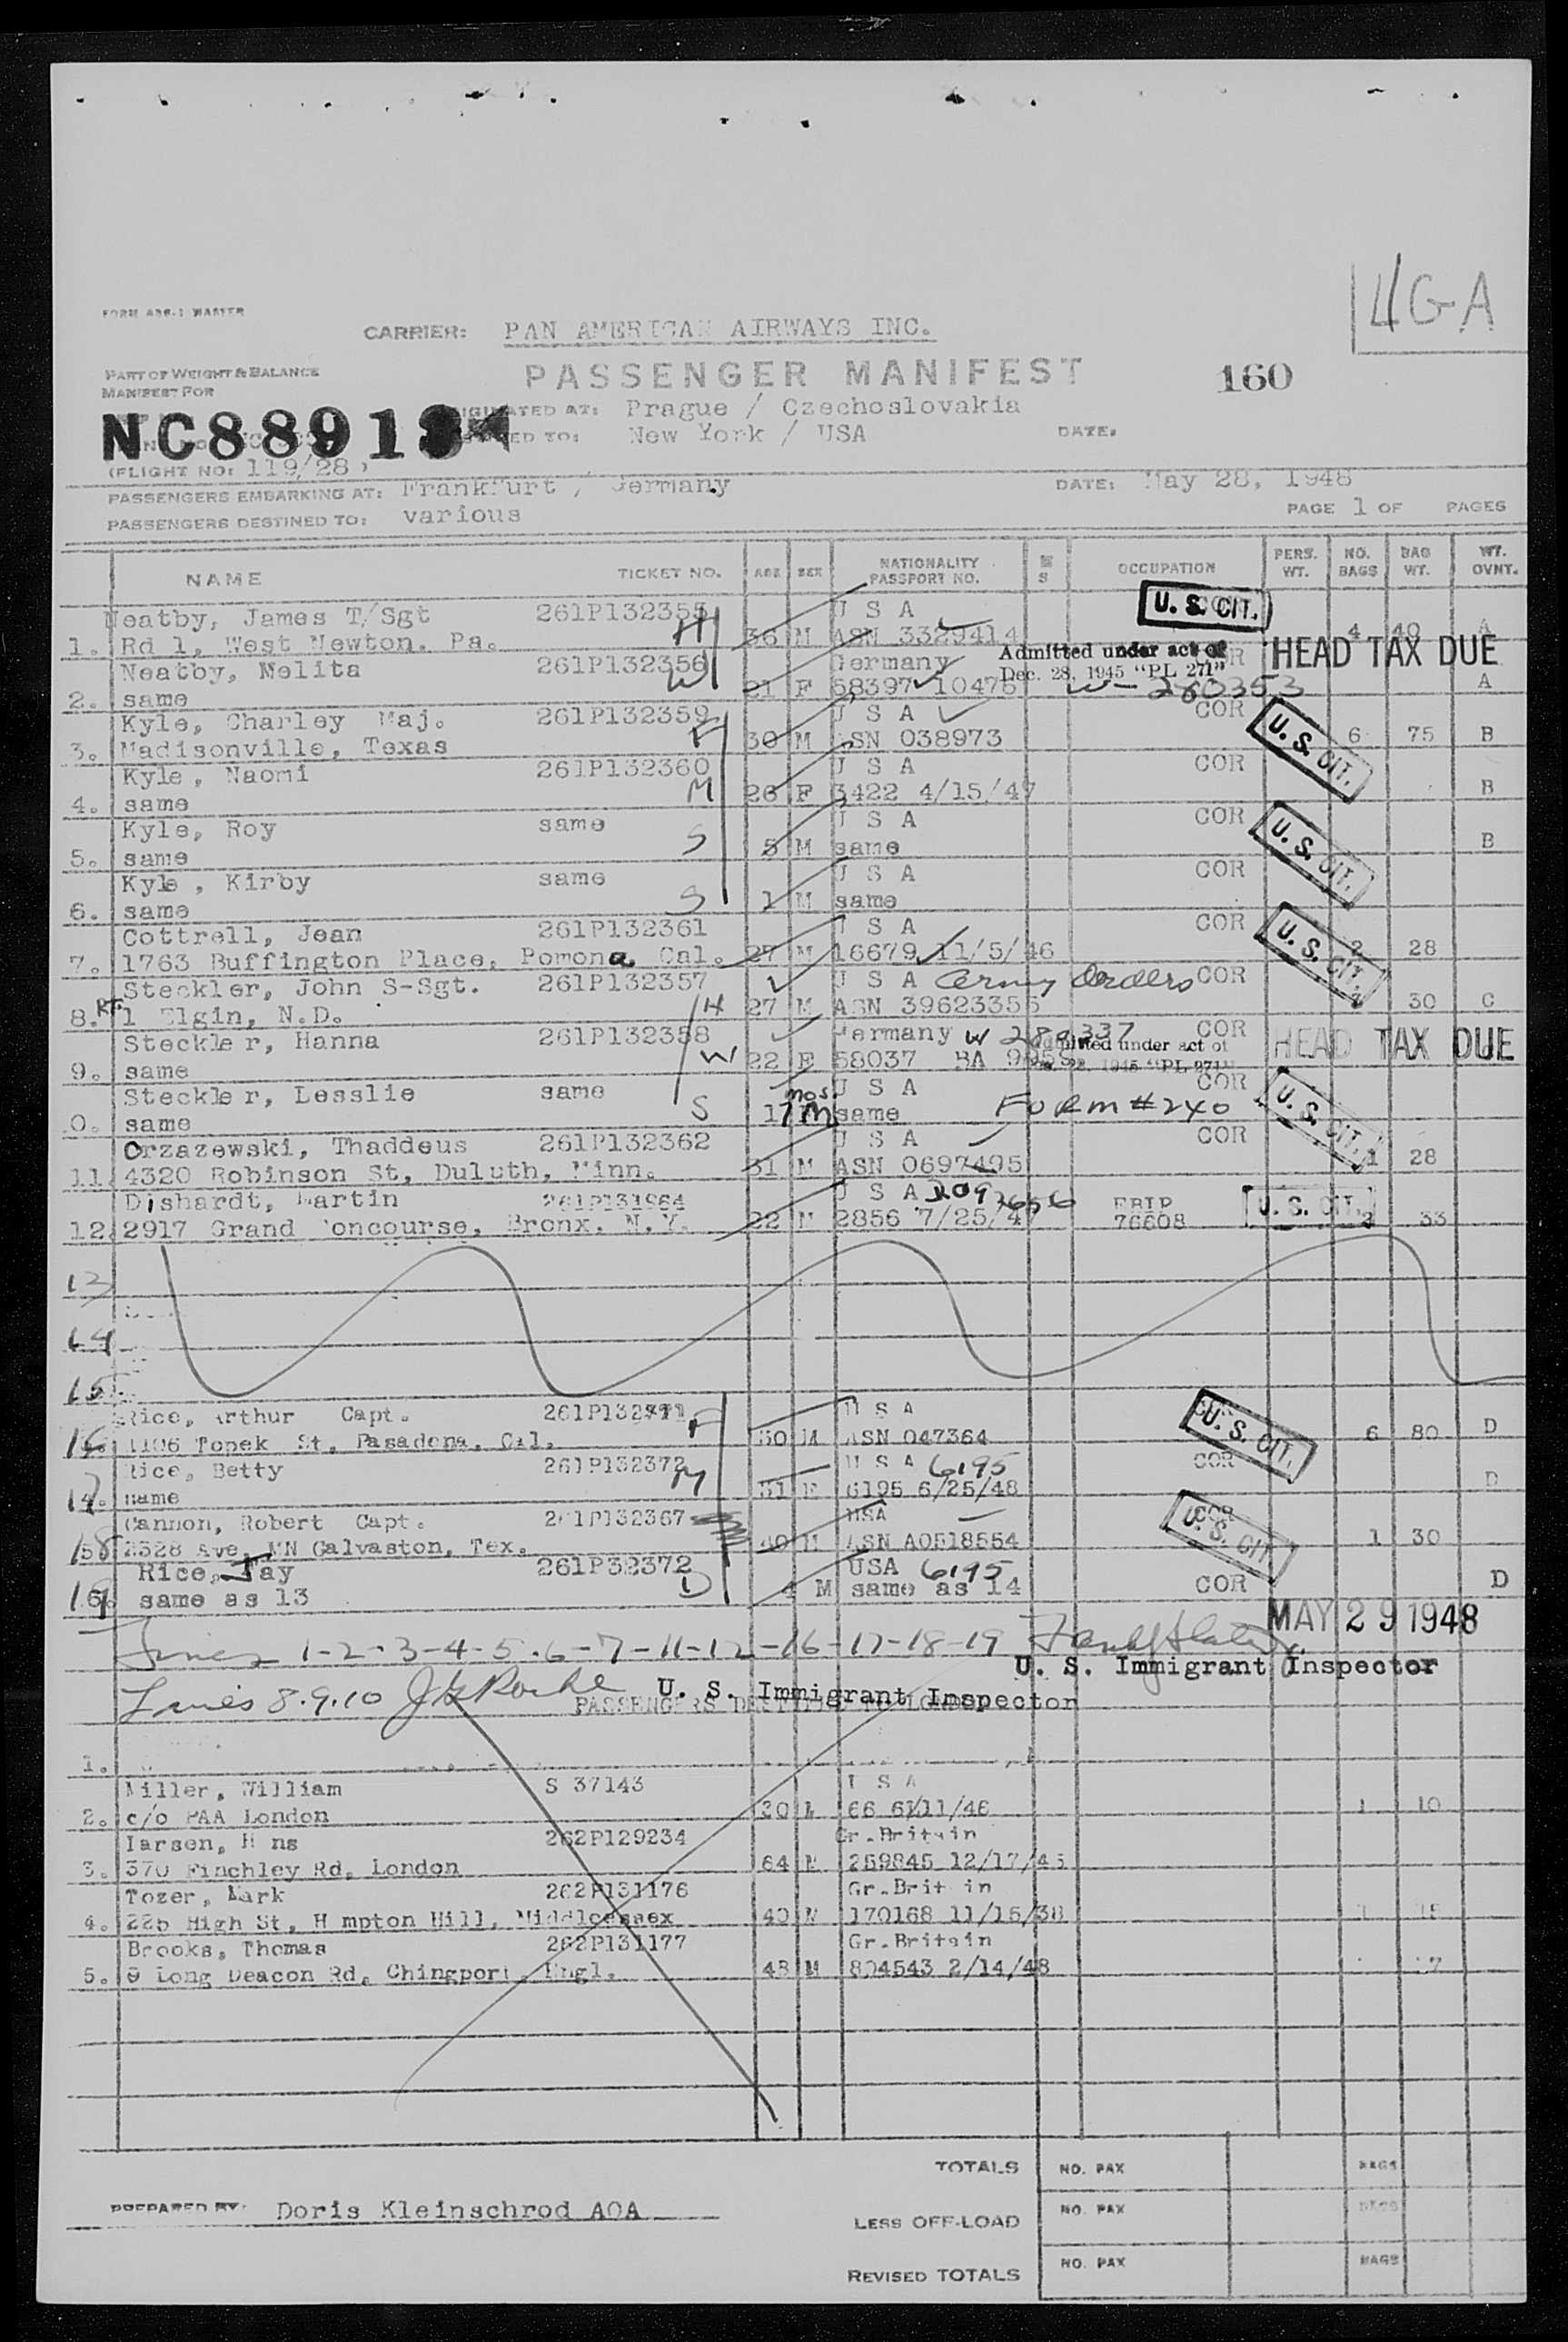 4G-A
FORM
CARRIER: PAN AMERICAN AIRWAYS INC.
PART OF WEIGHT & BALANCE
MANIFEST FOR
PASSENGER MANIFEST 160
NC88913
ORIGINATED AT: Prague / Czechoslovakia
TO: New York / USA DATE:
(FLIGHT NO: 119/28)
PASSENGERS EMBARKING AT: Frankfurt / Germany DATE: May 28, 1948
PASSENGERS DESTINED TO: various PAGE 1 OF PAGES
NAME TICKET NO. AGE SEX NATIONALITY PASSPORT NO. S OCCUPATION PERS. WT. NO. BAGS BAG WT. WT. OVNT.
Neatby, James T/Sgt 261P132355 U S A U. S. CIT.
1. Rd 1, West Newton. Pa. H 36 M ASN 3329414 4 40 A
Neatby, Melita 261P132356 Germany Admitted under act of HEAD TAX DUE
2. same W 21 F 58397 10476 Dec. 28, 1945 "PL 271" W-280353 A
Kyle, Charley Maj. 261P132359 U S A COR U. S. CIT.
3. Madisonville, Texas F 30 M ASN 038973 6 75 B
Kyle, Naomi 261P132360 U S A COR
4. same M 26 F 3422 4/15/47 B
Kyle, Roy same U S A COR U. S. CIT.
5. same S 5 M same B
Kyle, Kirby same U S A COR
6. same S 1 M same
Cottrell, Jean 261P132361 U S A COR U. S. CIT.
7. 1763 Buffington Place, Pomona, Cal. 27 M 16679 11/5/46 2 28
Steckler, John S-Sgt. 261P132357 U S A Army Orders COR
8. Rt. 1 Elgin, N.D. H 27 M ASN 39623355 30 C
Steckler, Hanna 261P132358 Germany W 280337 COR HEAD TAX DUE
9. same W 22 F 58037 BA Admitted under act of 28, 1945 "PL 271"
Steckler, Lesslie same mos. U S A COR U. S. CIT.
0. same S 17 M same FORM #240
Orzazewski, Thaddeus 261P132362 U S A COR
11. 4320 Robinson St, Duluth, Minn. 31 M ASN 0697495 1 28
Dishardt, Martin 261P131964 U S A EBIP U. S. CIT.
12. 2917 Grand Concourse, Bronx, N.Y. 22 M 2856 7/25/47 76608 2 33
13
14
15
Rice, Arthur Capt. 261P132371 U S A U. S. CIT.
16 1106 Topek St, Pasadena, Cal. F 30 M ASN 047364 6 80 D
Rice, Betty 261P132372 U S A 6195 COR
17 same M 31 F 6195 6/25/48 D
Cannon, Robert Capt. 261P132367 USA COR U. S. CIT.
18 2328 Ave. MN Galvaston, Tex. 40 M ASN A0518554 1 30
Rice, Jay 261P32372 USA 6195
19 same as 13 D 4 M same as 14 COR D
MAY 29 1948
Lines 1-2-3-4-5-6-7-11-12-16-17-18-19
U. S. Immigrant Inspector
Lines 8.9.10 U. S. Immigrant Inspector
1.
Miller, William S 37143 U S A
2. c/o PAA London 30 M 1 10
Larsen, H ns 262P129234 Gr.Britain
3. 370 Finchley Rd, London 64 M 259845 12/17/45
Tozer, Mark 262P131176 Gr.Brit in
4. 225 High St, H mpton Hill, Middlessex 40 M 170168 11/15/38
Brooks, Thomas 262P131177 Gr.Britain
5. 9 Long Deacon Rd, Chingport, Engl. 48 M 804543 2/14/48
TOTALS NO. PAX BAGS
PREPARED BY: Doris Kleinschrod AOA
LESS OFF-LOAD NO. PAX BAGS
REVISED TOTALS NO. PAX BAGS